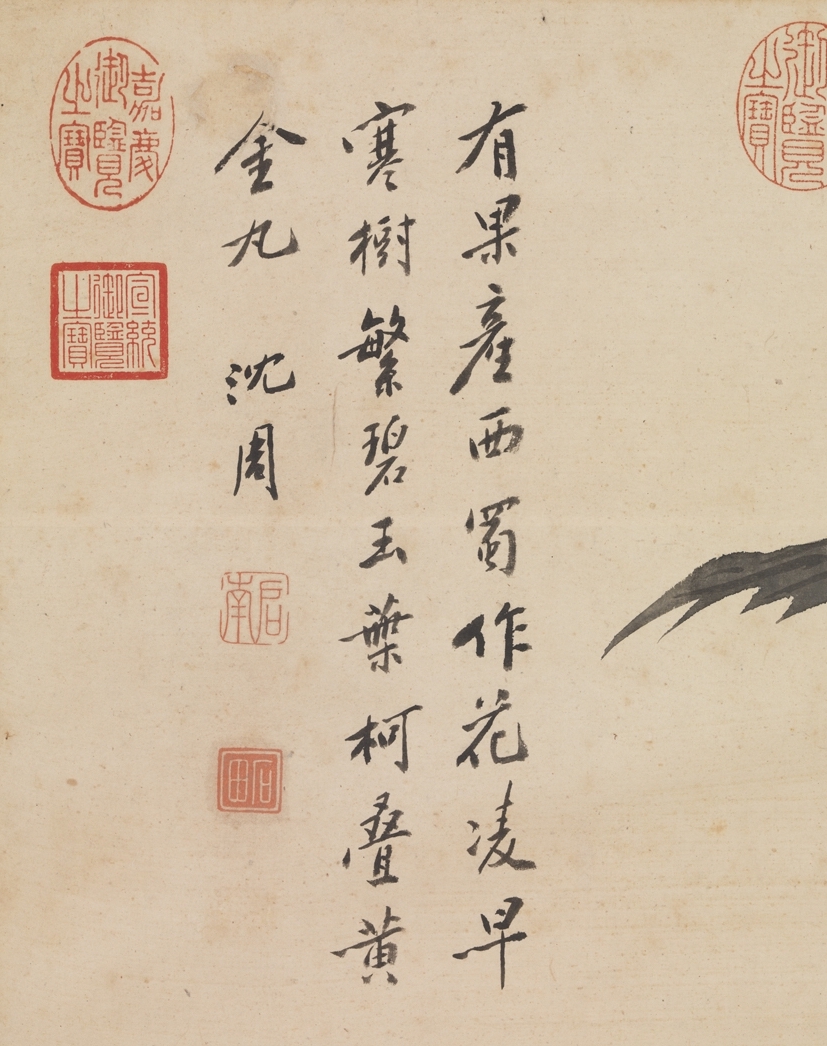 有果產西蜀作花凌早
寒樹繁碧玉葉柯疊黃
金丸 沈周
啟南
石田
嘉慶御覽之寶
宣統御覽之寶
御覽之寶